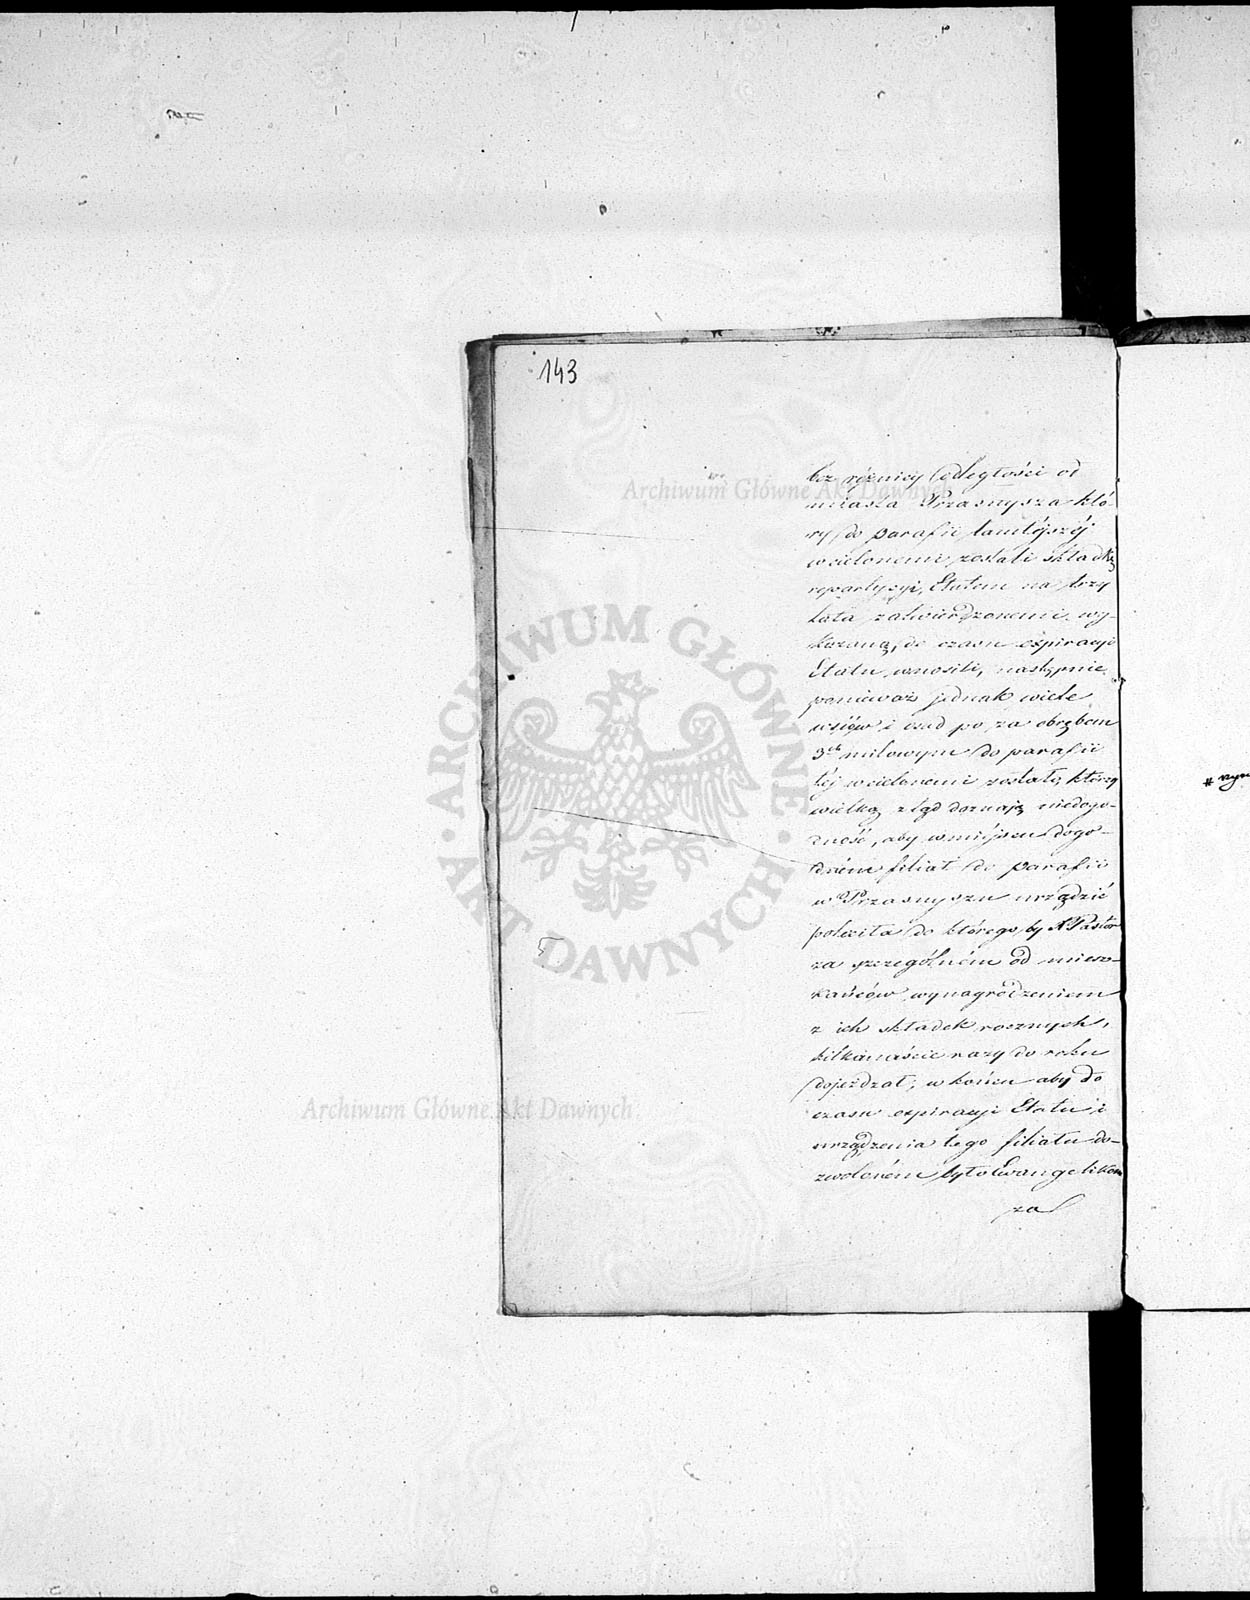 143
bez różnicy odległości od
miasta Przasnysza któ-
rzy do parafii tamtéjszéj
wcielonemi zostali składkę
repartycyi, Etatem na trzy
lata zatwierdzonemi wy-
kazaną, do czasu expiracyi
Etatu wnosili, następnie
ponieważ jednak wiele
wsiów i osad po za obrębem
3ch milowym do parafii
téj wcielonemi zostało, którzy
wielką ztąd doznają niedogo-
dność, aby w miéjscu dogo-
dném filiał do parafii
w Przasnyszu urządzić
poleciła do którego by X Pastor
za szczególném od miesz-
kańców wynagrodzeniem
z ich składek rocznych,
kilkanaście razy do roku
dojeżdzał, w końcu aby do
czasu expiracyi Etatu i
urządzenia tego filiału do-
zwoloném było Ewangelikom
za
Archiwum Główne Akt Dawnych
ARCHIWUM GŁÓWNE · AKT DAWNYCH ·
Archiwum Główne Akt Dawnych